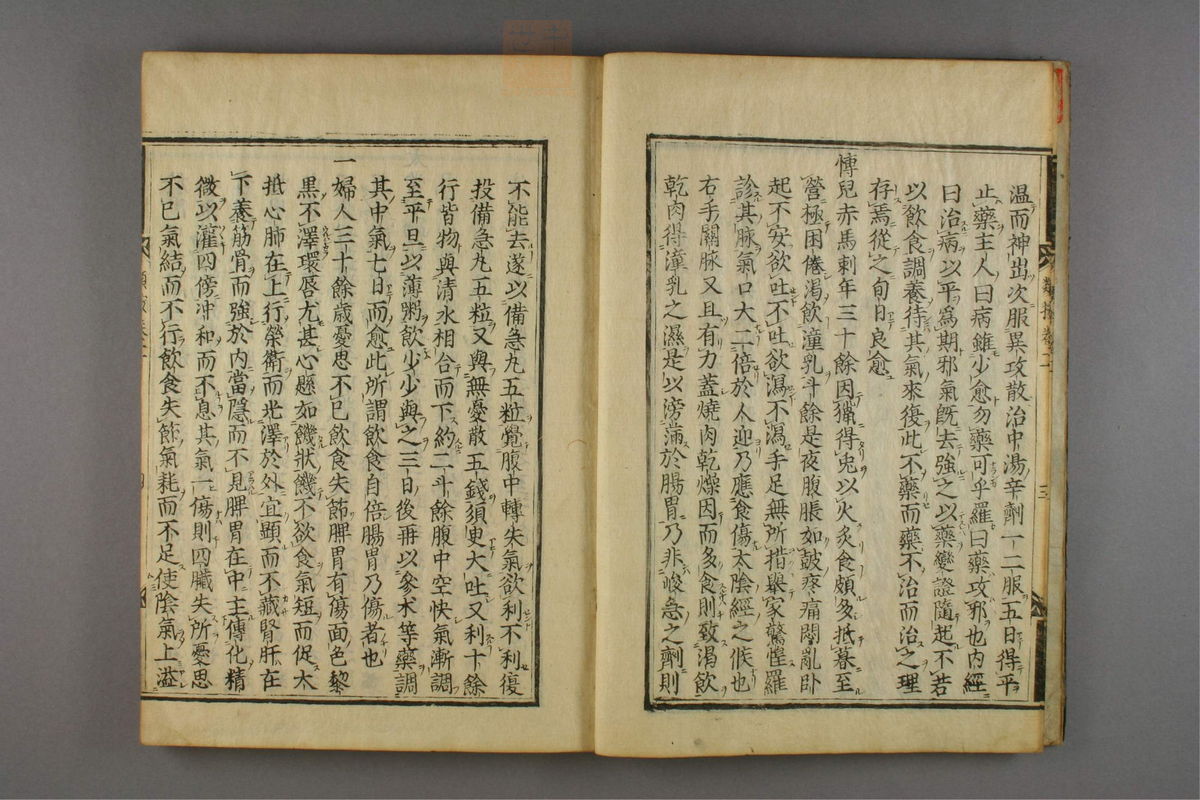 温而神出次服異攻散治中湯辛劑一二服五日得平
止藥主人曰病雖少愈勿藥可乎羅曰藥攻邪也内經
曰治病以平爲期邪氣既去強之以藥變證隨起不若
以飲食調養待其氣來復此不藥而藥不治而治之理
存焉從之旬日良愈
愽兒赤馬剌年三十餘因獵得兎以火炙食頗多抵暮至
營極困倦渴飲潼乳斗餘是夜腹脹如皷疼痛悶亂卧
起不安欲吐不吐欲瀉不瀉手足無所措舉家驚惶羅
診其脉氣口大二倍於人迎乃應食傷太陰經之候也
右手關脉又且有力蓋燒肉乾燥因而多食則致渴飲
乾肉得潼乳之濕是以滂滿於腸胃乃非峻急之劑則
不能去遂以備急丸五粒覺腹中轉失氣欲利不利復
投備急丸五粒又與無憂散五錢須臾大吐又利十餘
行皆物與清水相合而下約二斗餘腹中空快氣漸調
至平旦以薄粥飲少少與之三日後再以參术等藥調
其中氣七日而愈此所謂飲食自倍腸胃乃傷者也
一婦人三十餘歲憂思不已飲食失節脾胃有傷面色黎
黑不澤環唇尤甚心懸如饑狀饑不欲食氣短而促大
抵心肺在上行榮衛而光澤於外宜顯而不藏腎肝在
下養筋骨而強於内當隱而不見脾胃在中主傳化精
微以灌四傍冲和而不息其氣一傷則四臓失所憂思
不已氣結而不行飲食失節氣耗而不足使陰氣上溢